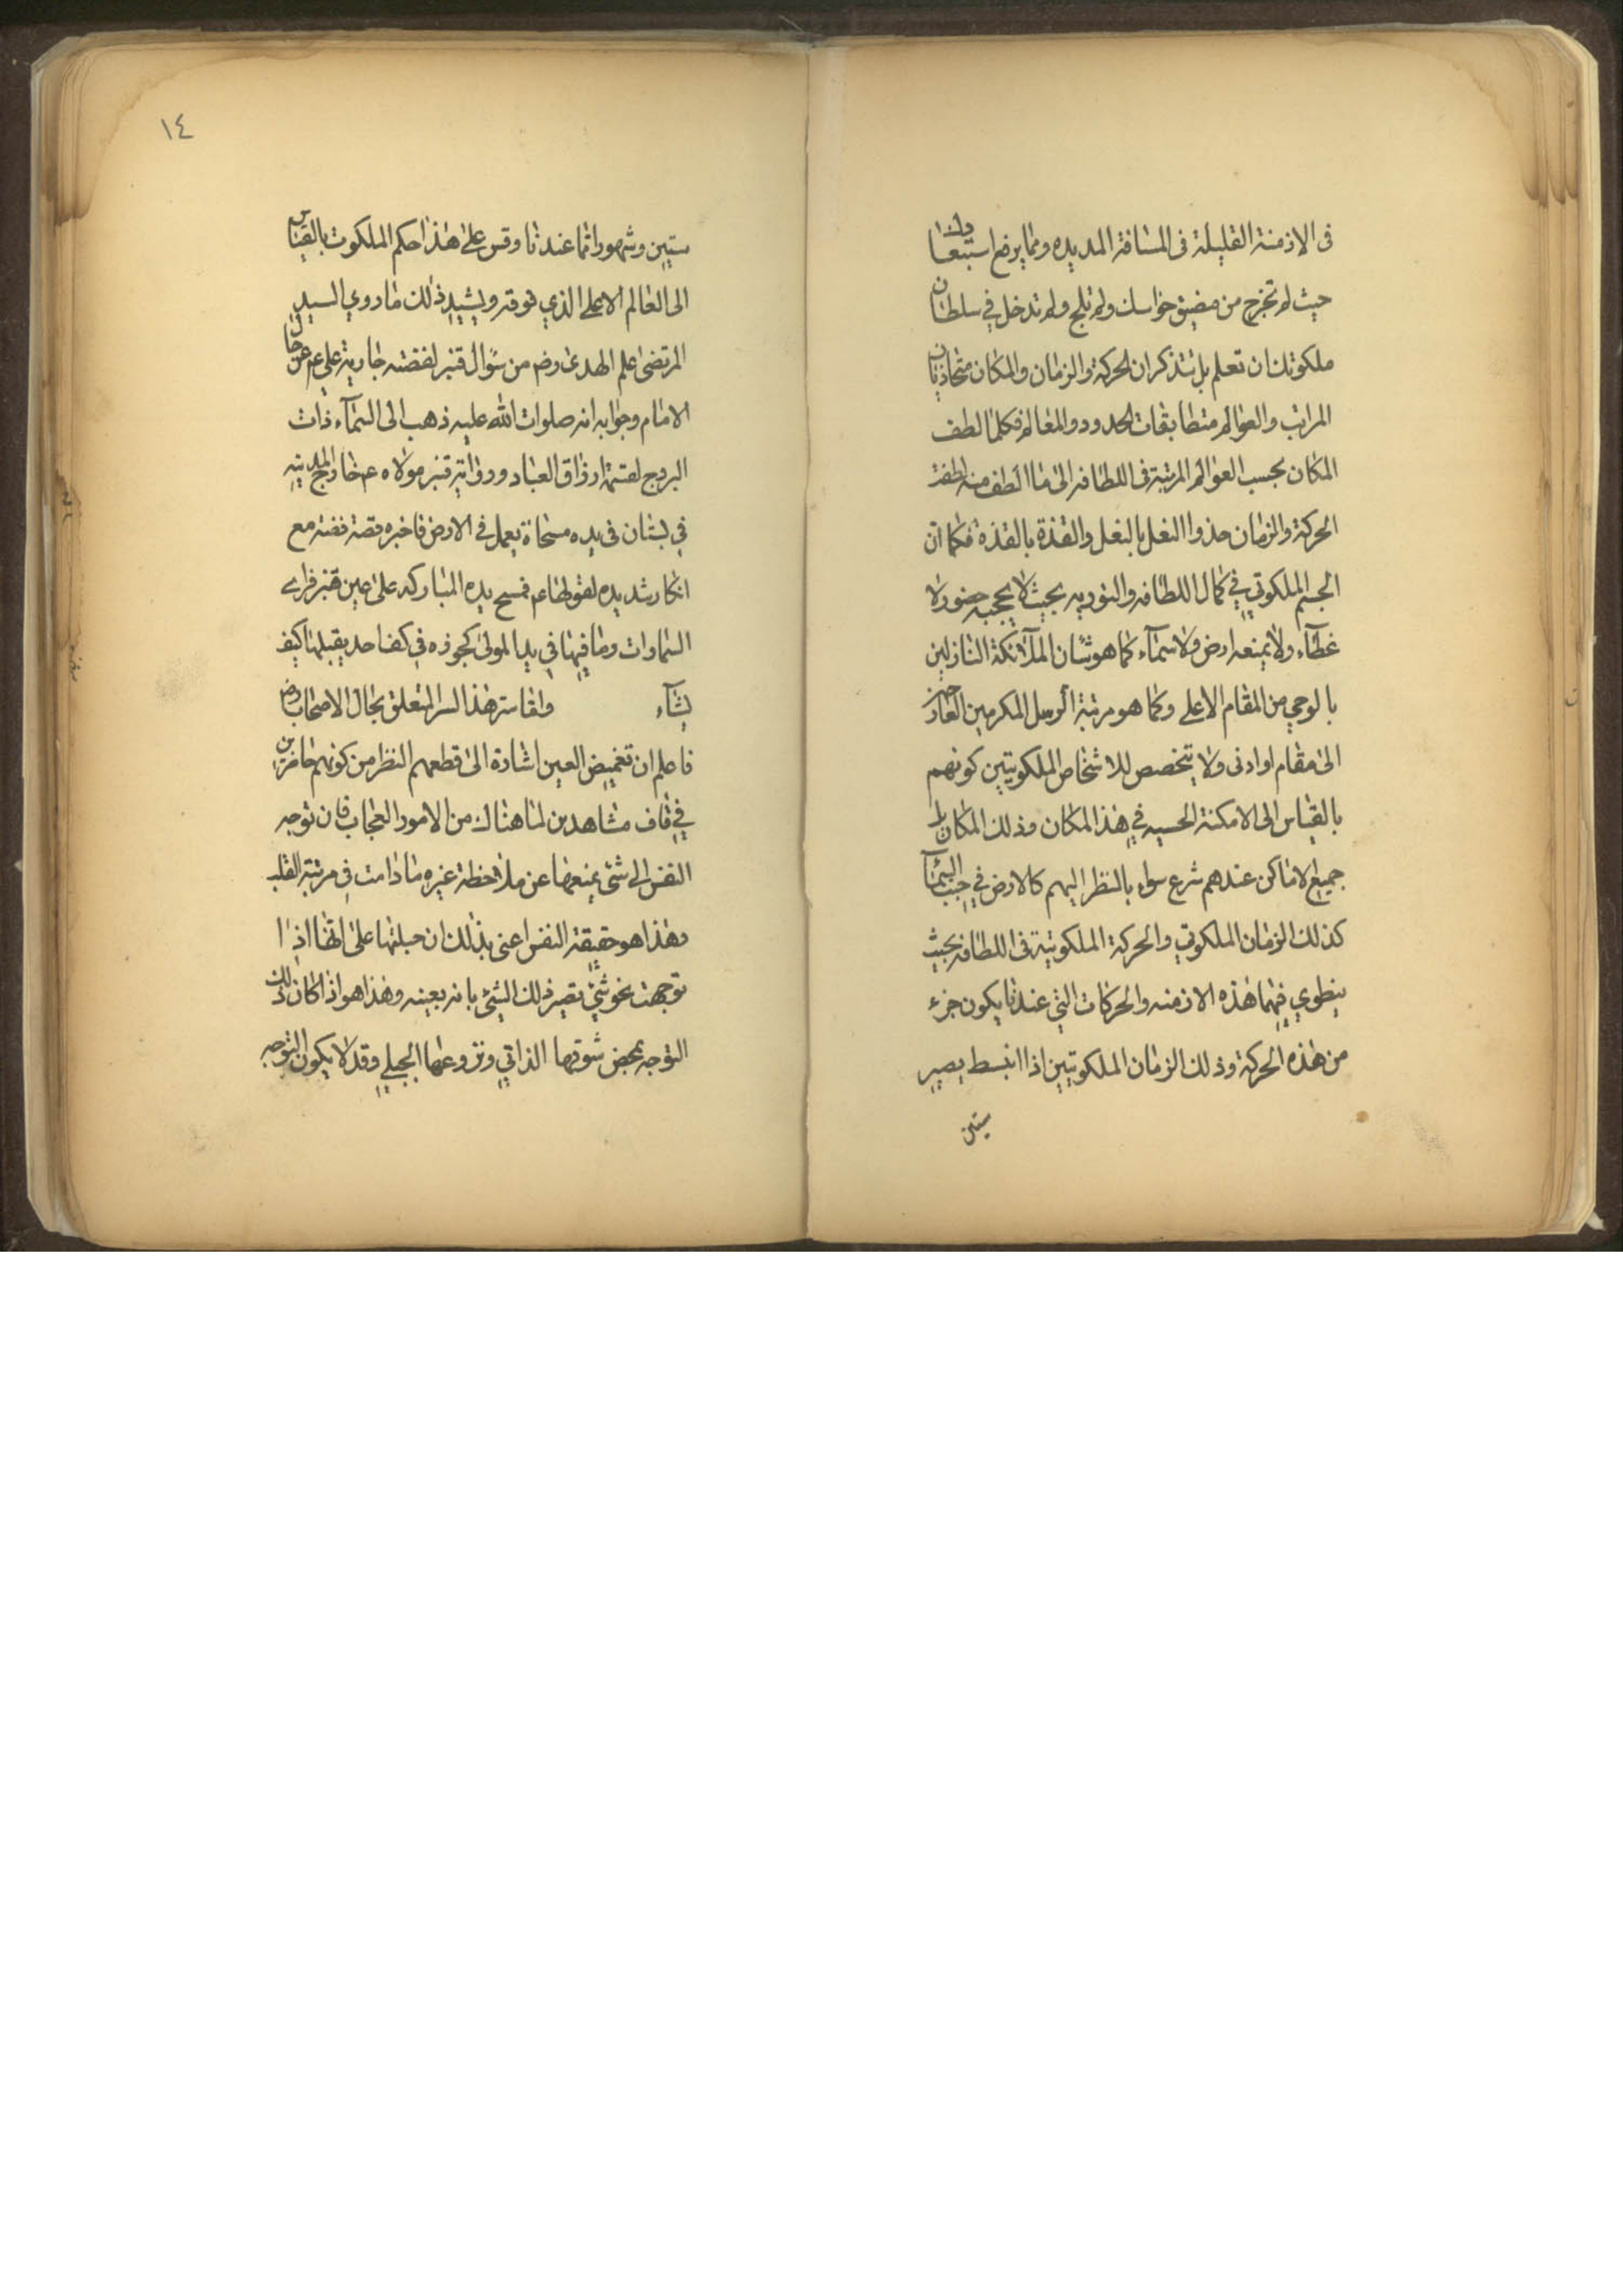 فى الازمنة القليلة فى المسافة المديده ومما يرفع استبعادك
حيث لم تخرج من مضيق حواسك ولم تلج ولم تدخل في سلطان
ملكوتك ان تعلم بل تتذكر ان الحركة والزمان والمكان متحاذيات
المراتب والعوالم متطابقات الحدود والمعالم فكلما لطف
المكان بحسب العوالم المرتبة فى اللطافه الى ما الطف منه لطفت
الحركة والزمان حذوا النعل بالنعل والقذة بالقذة فكما ان
الجسم الملكوتي في كمال اللطافه والنوريه بحيث لا يحجبه حضوره
غطآء ولا يمنعه ارض ولا سمآء كما هو شان الملآئكة النازلين
بالوحي من المقام الاعلى وكما هو مرتبة الرسل المكرمين العارجين
الى مقام او ادنى ولا يتخصص للاشخاص الملكوتيين كونهم
بالقياس الى الامكنة الحسيه في هذا المكان وذلك المكان بل
جميع الاماكن عندهم شرع سواء بالنظر اليهم كالارض في جنب السمآء
كذلك الزمان الملكوتي والحركة الملكوتية فى اللطافه بحيث
ينطوي فيهما هذه الازمنه والحركات التي عندنا يكون جزء
من هذه الحركة وذلك الزمان الملكوتيين اذا انبسط يصير
سنين
١٤
سنين وشهورا مما عندنا وقس على هذا حكم الملكوت بالقياس
الى العالم الاعلى الذي فوقه ويشيد ذلك ما روي السيد
المرتضى علم الهدى رض من سؤال قنبر لفضه جارية علي عم عن حال
الامام وجوابه انه صلوات الله عليه ذهب الى السمآء ذات
البروج لقسمة ارزاق العباد ورواية قنبر مولاه عم خارج المدينه
في بستان فى يده مسحاة يعمل في الارض فاخبره قصة فضه مع
انكار شديده لقولها عم فمسح يده المباركه على عين قنبر فراى
السماوات وما فيها في يد المولى كجوزه في كف احد يقبلها كيف
يشآء واما سر هذا السر المتعلق بحال الاصحاب رض
فاعلم ان تغميض العين اشارة الى قطعهم النظر من كونهم حاضرين
في قاف مشاهدين لما هناك من الامور العجاب فان توجه
النفس الى شئ يمنعها عن ملاحظة غيره ما دامت في مرتبة القلب
وهذا هو حقيقة النفس اعنى بذلك ان جبلتها على انها اذا
توجهت نحو شئ تصير ذلك الشئ بانه بعينه وهذا هو اذا كان ذلك
التوجه بمحض شوقها الذاتي ونزوعها الجبلي وقد لا يكون التوجه